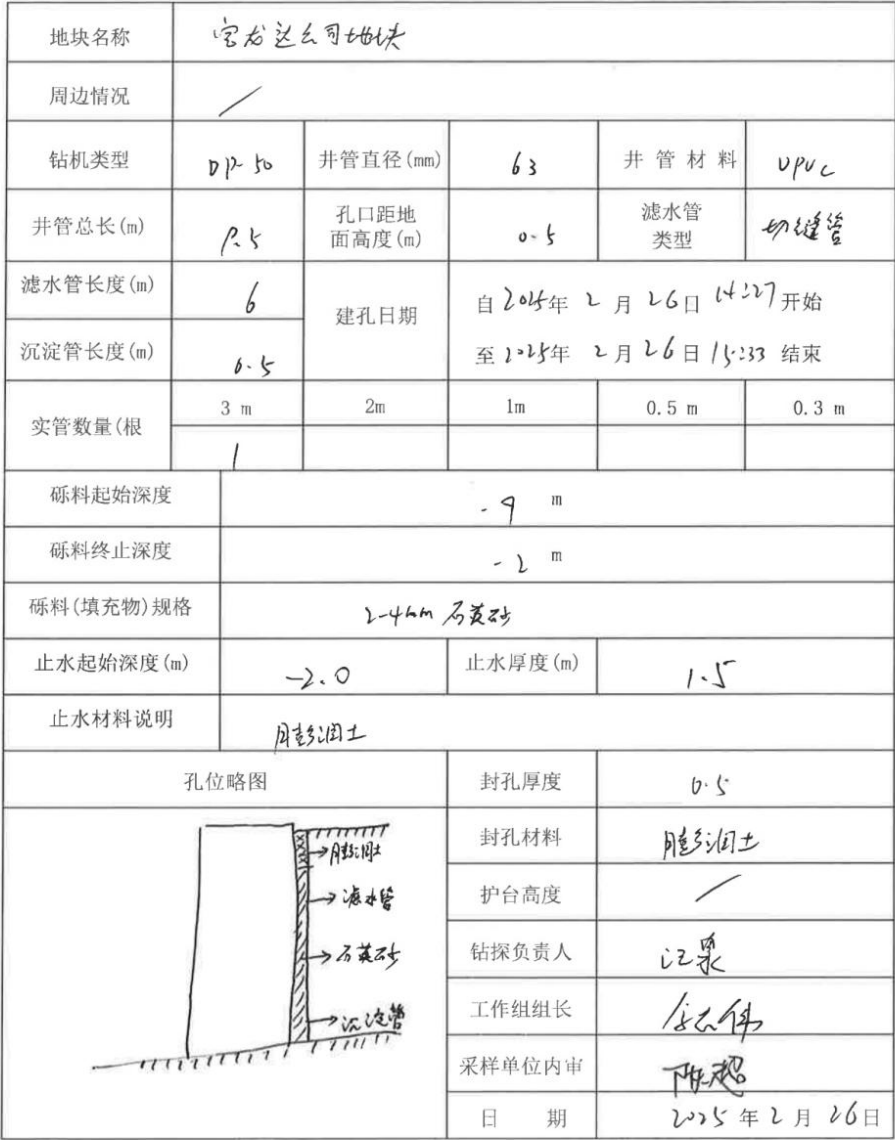 地块名称 宝龙达公司地块
周边情况 /
钻机类型 DP-50 井管直径(mm) 63 井管材料 UPVC
井管总长(m) 孔口距地面高度(m) 0.5 滤水管类型 切缝管
滤水管长度(m) 6 建孔日期 自2025年2月26日14:27开始
沉淀管长度(m) 0.5 至2025年2月26日15:33结束
实管数量(根 3 m 2m 1m 0.5 m 0.3 m
1
砾料起始深度 -9 m
砾料终止深度 -2 m
砾料(填充物)规格 2-4mm 石英砂
止水起始深度(m) -2.0 止水厚度(m) 1.5
止水材料说明 膨润土
孔位略图 封孔厚度 0.5
封孔材料 膨润土
护台高度 /
钻探负责人 江泉
工作组组长
采样单位内审 陈超
日期 2025年2月26日
膨润土
滤水管
石英砂
沉淀管